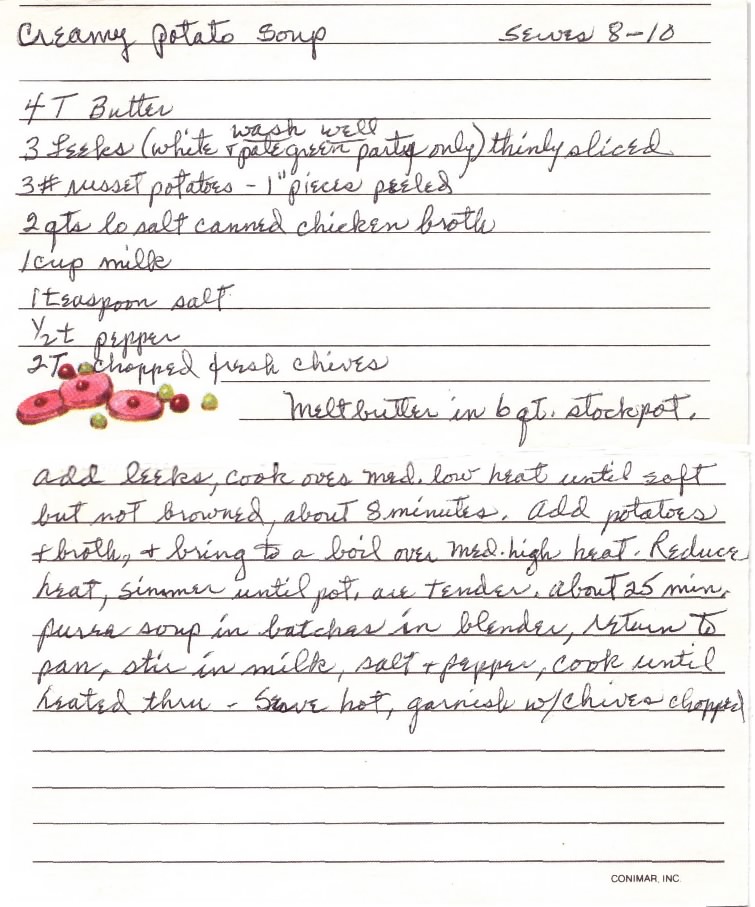 Creamy Potato Soup Serves 8-10
4 T Butter
wash well
3 Leeks (white + pale green party only) thinly sliced
3# russet potatoes - 1" pieces peeled
2 qts lo salt canned chicken broth
1 cup milk
1 teaspoon salt
1/2 t pepper
2T chopped fresh chives
Melt butter in 6 qt. stockpot.
add leeks, cook over med. low heat until soft
but not browned, about 8 minutes. Add potatoes
+ broth, + bring to a boil over med. high heat. Reduce
heat, simmer until pot. are tender. about 25 min.
puree soup in batches in blender, return to
pan, stir in milk, salt + pepper, cook until
heated thru - Serve hot, garnish w/ chives chopped
CONIMAR, INC.